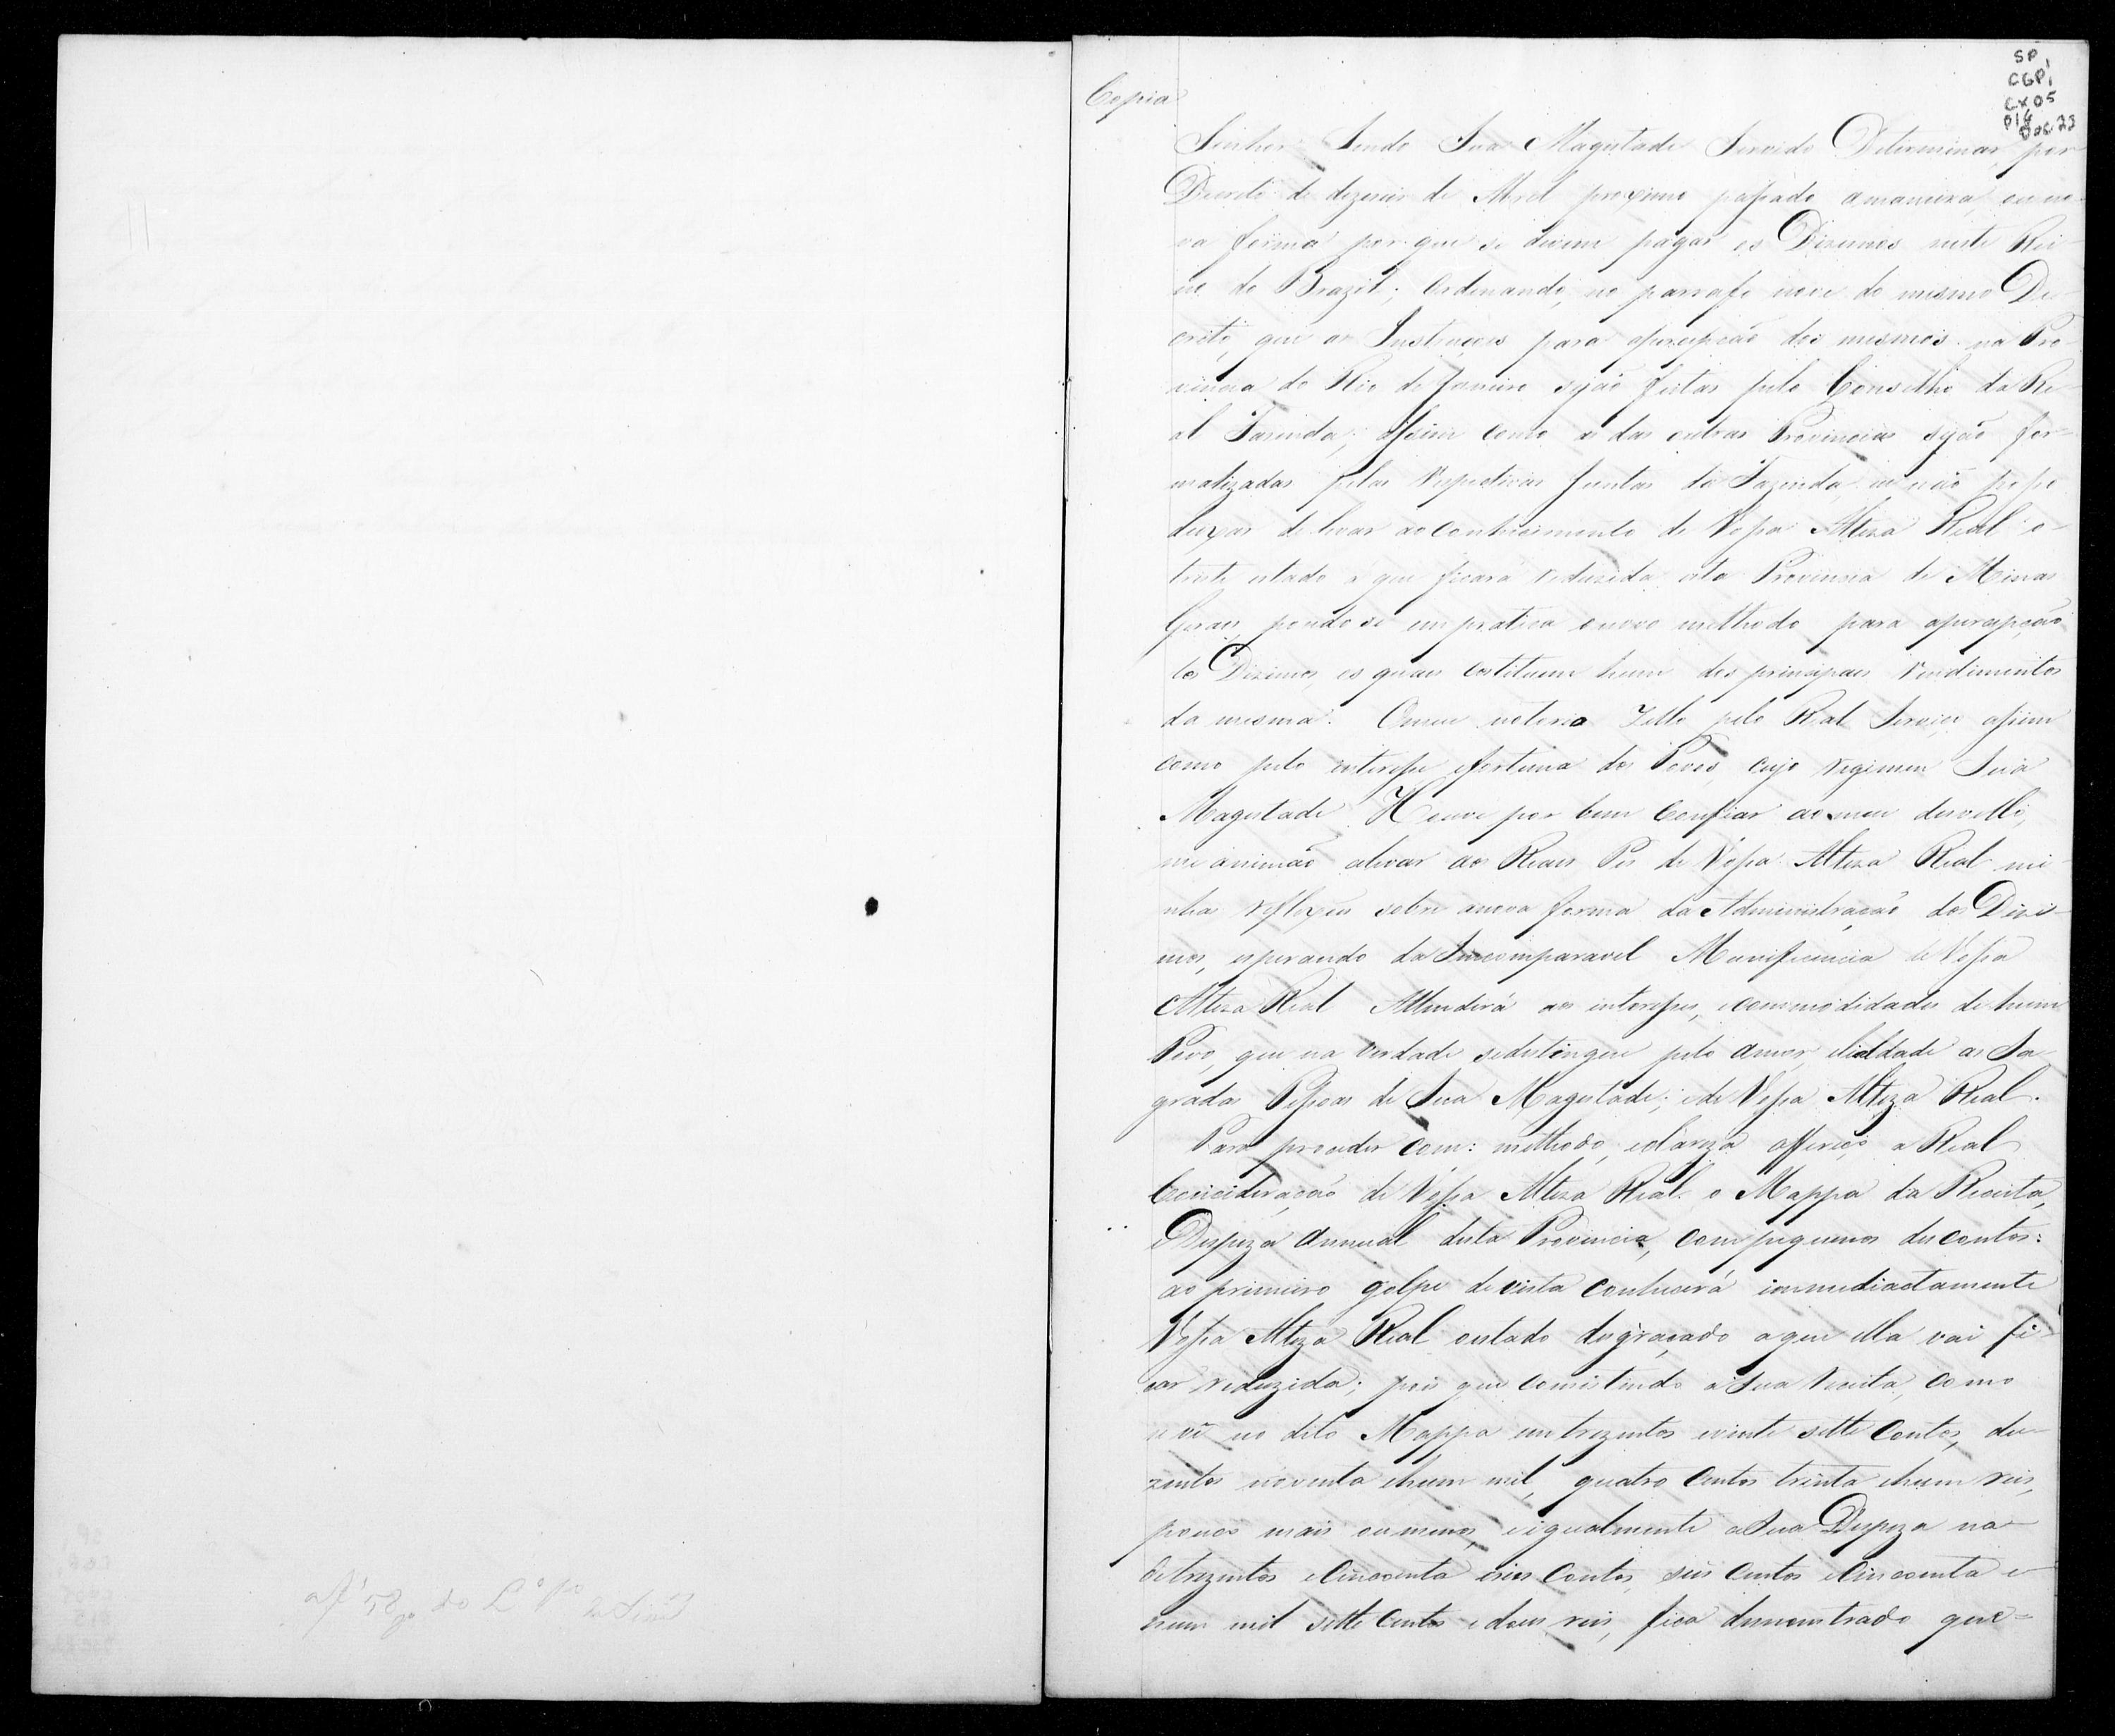 SP
CGP1
CX05
P16
Doc 23
Copia
Senhor. Sendo Sua Magestade Servido Determinar por
Decreto de dezeseis de Abril proximo passado amaneira, ou no-
va fórma por que se devem pagar os Dizimos neste Rei-
no do Brazil; Ordenando, no parrafo nove do mesmo De-
creto, que as Instruçoes para apercepção dos mesmos na Pro-
vincia do Rio de Janeiro sejão feitas pelo Conselho da Re-
al Fazenda; assim como as das outras Provincias sejão for-
malizadas pelas respectivas Juntas da Fazenda, eu não posso
deixar de levar ao conhecimento de Vossa Alteza Real o
triste estado a que ficará reduzida esta Provincia de Minas
Geraes, pondo se em pratica o novo methodo para apercepção
dos Dizimos, os quaes costituem hum dos principaes rendimentos
da mesma. O meu notorio Zello pelo Real Serviço, assim
como pelo interesse efortuna dos Povos, cujo regimen Sua
Magestade Houve por bem Confiar ao meu desvello,
me animão alevar aos Reaes Pés de Vossa Alteza Real mi-
nhas reflexoes sobre anova forma da Administração dos Dizi-
mos, esperando da Incomparavel Munificencia de Vossa
Alteza Real Attenderá aos interesses, ecommodidades de hum
Povo, que na verdade sedestingue pelo amor, elialdade as Sa-
gradas Pessoas de Sua Magestade; ede Vossa Alteza Real.
Para proceder com: methodo, eclareza offereço a Real
Concideração de Vossa Alteza Real o Mappa da Receita,
eDespeza annual desta Provincia, com pequenos descontos:
ao primeiro golpe de vista conhecerá immediactamente
Vossa Alteza Real oestado desgraçado aque ella vai fi-
car reduzida; pois que consistindo a Sua receita, como
se vê no dito Mappa em trezentos evinte sette Contos, du-
zentos noventa ehum mil, quatro centos trinta ehum reis,
pouco mais oumenos, eigualmente a Sua Despeza na
de trezentos eCincoenta eseis Contos, seis centos eCincoenta e
hum mil sette Centos e dous reis, fica demonstrado que=
af 58 do L.º